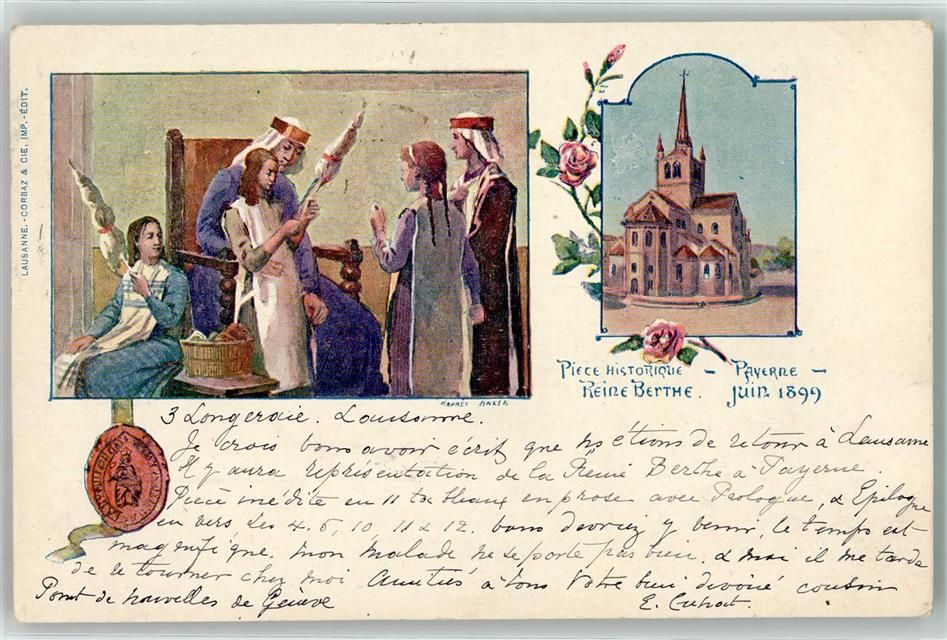 LAUSANNE.-CORBAZ & CIE, IMP.-ÉDIT.
D'APRÈS ANKER
PIÈCE HISTORIQUE - PAYERNE -
REINE BERTHE. JUIN 1899
3 Longeraie. Lausanne.
Je crois vous avoir écrit que ns étions de retour à Lausanne
Il y aura représentation de la Reine Berthe à Payerne.
Pièce inédite en 11 tableaux en prose avec Prologue, & Epilogue
en vers Les 4, 5, 10, 11 & 12. vous devriez y venir, le temps est
magnifique, mon malade ne se porte pas bien, & moi il me tarde
de retourner chez moi Amitiés à tous Votre bien dévoué cousin
Point de nouvelles de Genève E.